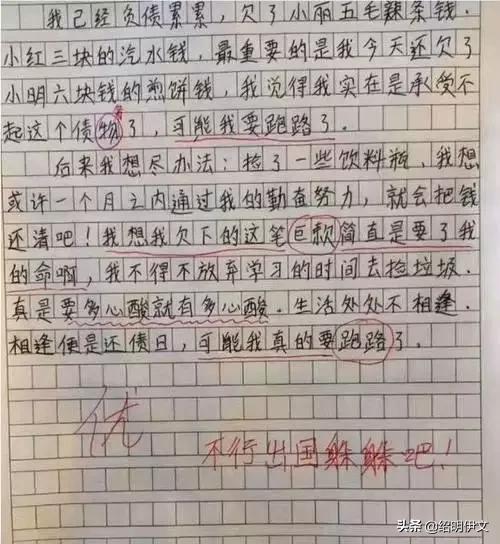 我已经负债累累，欠了小丽五毛辣条钱.
小红三块的汽水钱，最重要的是我今天还欠了
小明六块钱的煎饼钱，我觉得我实在是承受不
务
起这个债物了，可能我要跑路了.
后来我想尽办法：捡了一些饮料瓶，我想
或许一个月之内通过我的勤奋努力，就会把钱
还清吧！我想我欠下的这笔巨款简直是要了我
的命啊，我不得不放弃学习的时间去捡垃圾.
真是要多心酸就有多心酸.生活处处不相逢.
相逢便是还债日，可能我真的要跑路了.
优
不行出国躲躲吧！
头条 @绍明伊文